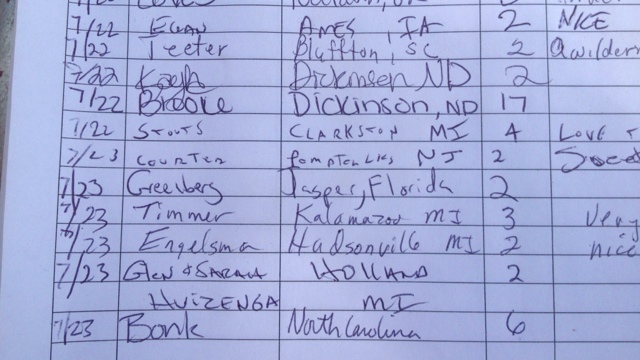 7/22 Ewan Ames, IA 2 NICE
7/22 Teeter Bluffton, SC 2
7/22 Dickinson ND 2
7/22 Brooke Dickinson, ND 17
7/22 STOUTS CLARKSTON MI 4 LOVE
7/23 COURTER POMPTON LKS NJ 2
7/23 Greenberg Jasper, Florida 2
7/23 Timmer Kalamazoo MI 3 Very
7/23 Engelsma Hudsonville MI 2 nice
7/23 GLEN & SARAH HOLLAND 2
HUIZENGA MI
7/23 Bonk North Carolina 6